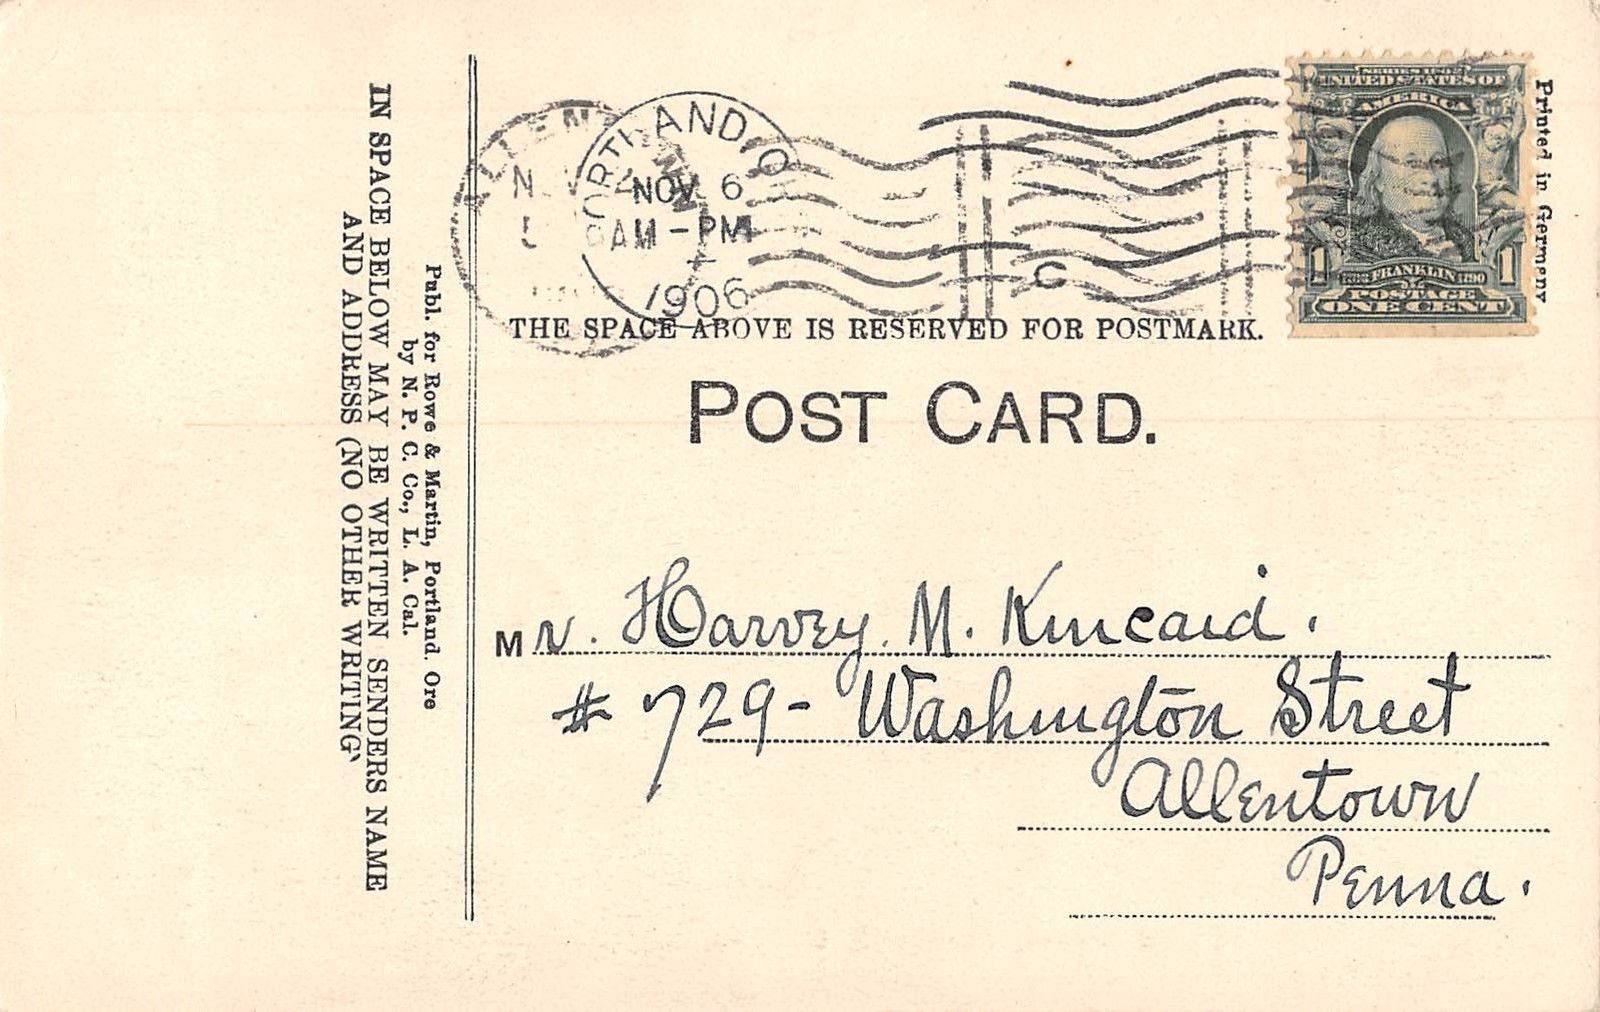 PORTLAND, O
NOV 6
6AM-PM
1906
SERIES 1902
UNITED STATES OF
AMERICA
1 FRANKLIN 1
POSTAGE
ONE CENT
Printed in Germany
C
THE SPACE ABOVE IS RESERVED FOR POSTMARK.
POST CARD.
Mr. Harvey. M. Kincaid.
# 729- Washington Street
Allentown
Penna.
Publ. for Rowe & Martin, Portland. Ore
by N. P. C. Co., L. A. Cal.
IN SPACE BELOW MAY BE WRITTEN SENDERS NAME
AND ADDRESS (NO OTHER WRITING)